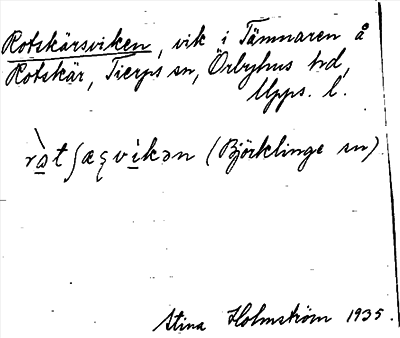 Rotskärsviken, vik i Tämnaren å
Rotskär, Tierps sn, Örbyhus hd,
Upps. l.
(Björklinge sn)
Stina Holmström 1935.